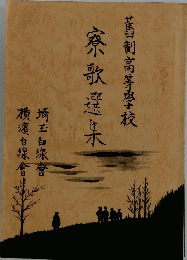 舊制高等學校
寮歌選集
埼玉白線會
横濱白線會